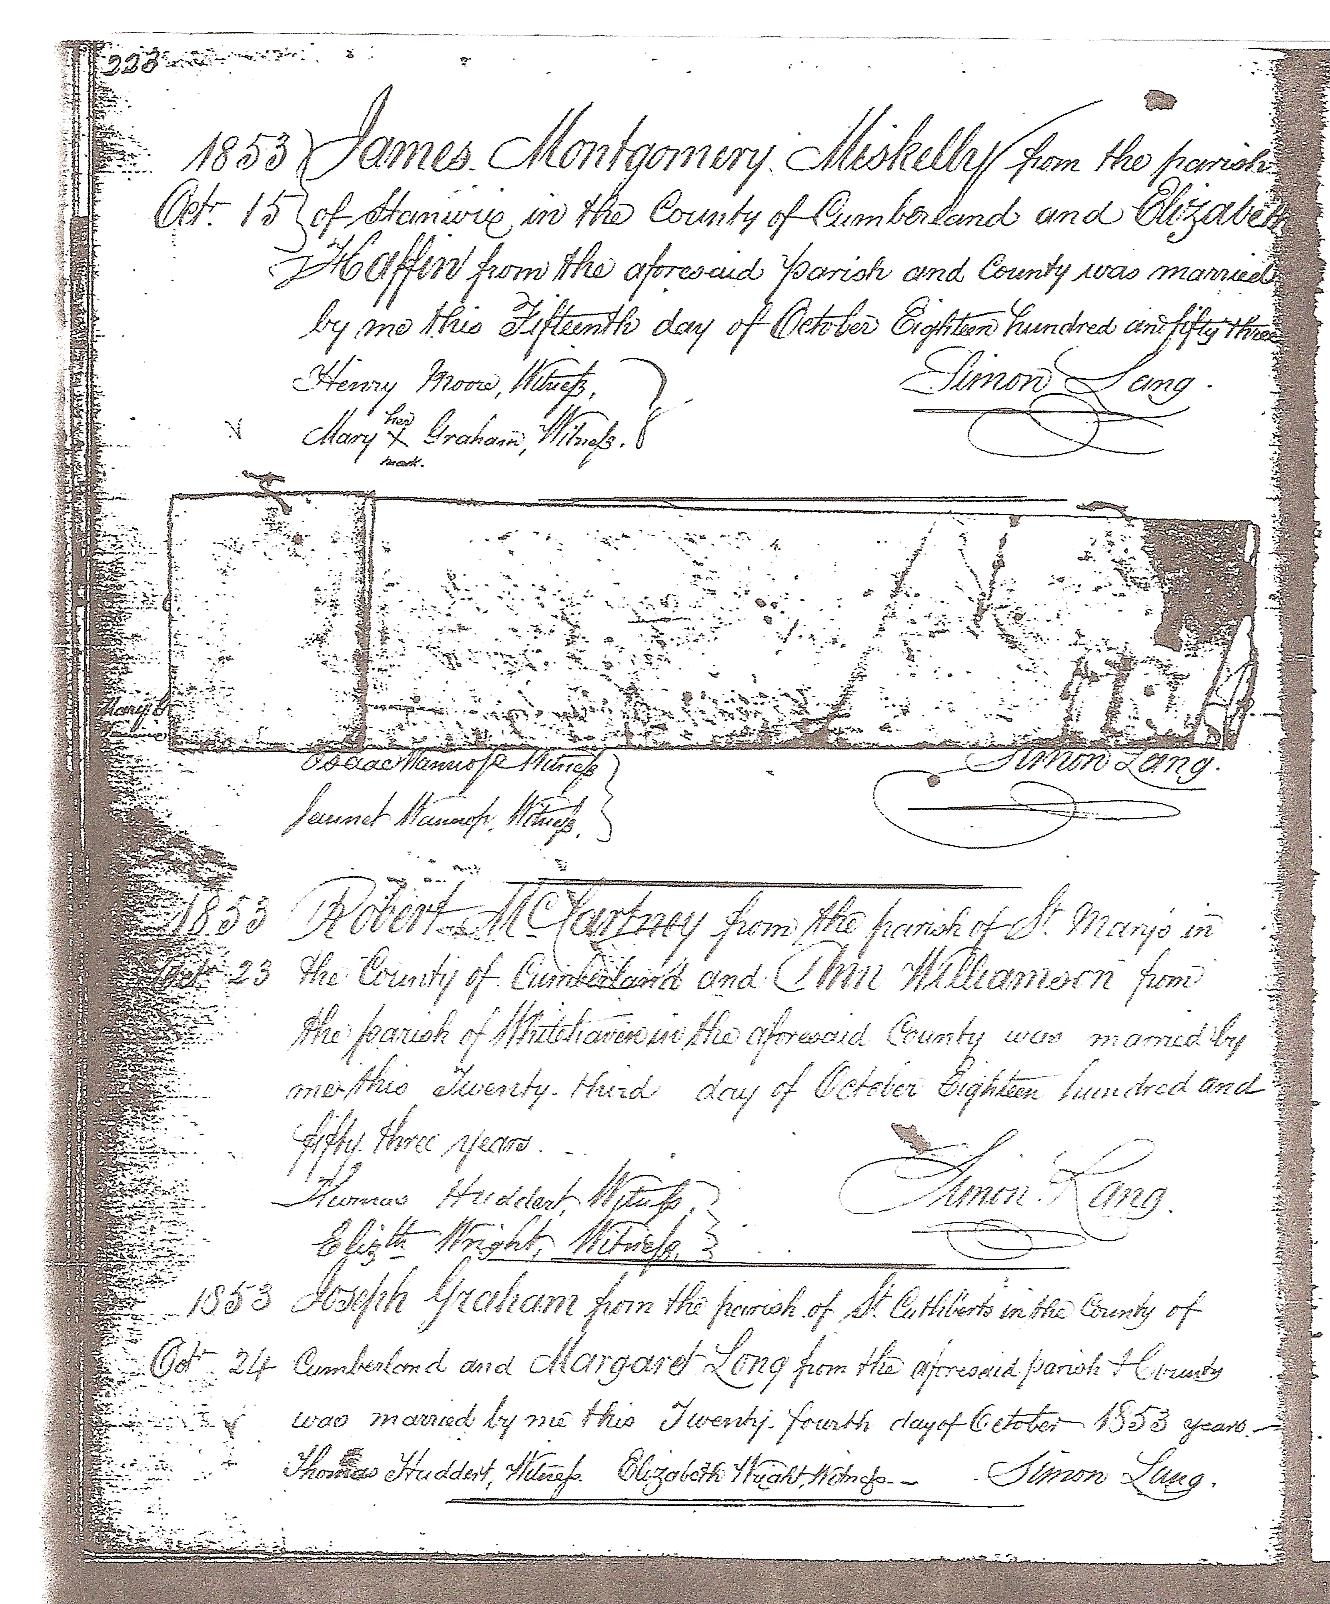 223
1853 James Montgomery Miskelly from the parish
Oct. 15 of Stanwix in the County of Cumberland and Elizabeth
Haffin from the aforesaid parish and County was married
by me this Fifteenth day of October Eighteen hundred and fifty three
Henry Moore, Witness,
Simon Lang.
her
Mary X Graham, Witness.
mark.
Isaac Witness
Simon Lang.
Witness.
1853 Robert McCartney from the parish of St. Mary's in
Oct. 23 the County of Cumberland and Ann Williamson from
the parish of Whitehaven in the aforesaid County was married by
me this Twenty-third day of October Eighteen hundred and
fifty three years.
Thomas Huddert, Witness.
Simon Lang.
Elizth Wright, Witness.
1853 Joseph Graham from the parish of St. Cuthberts in the County of
Oct. 24 Cumberland and Margaret Long from the aforesaid parish & County
was married by me this Twenty-fourth day of October 1853 years.
Thomas Huddert, Witness. Elizabeth Wright, Witness Simon Lang.